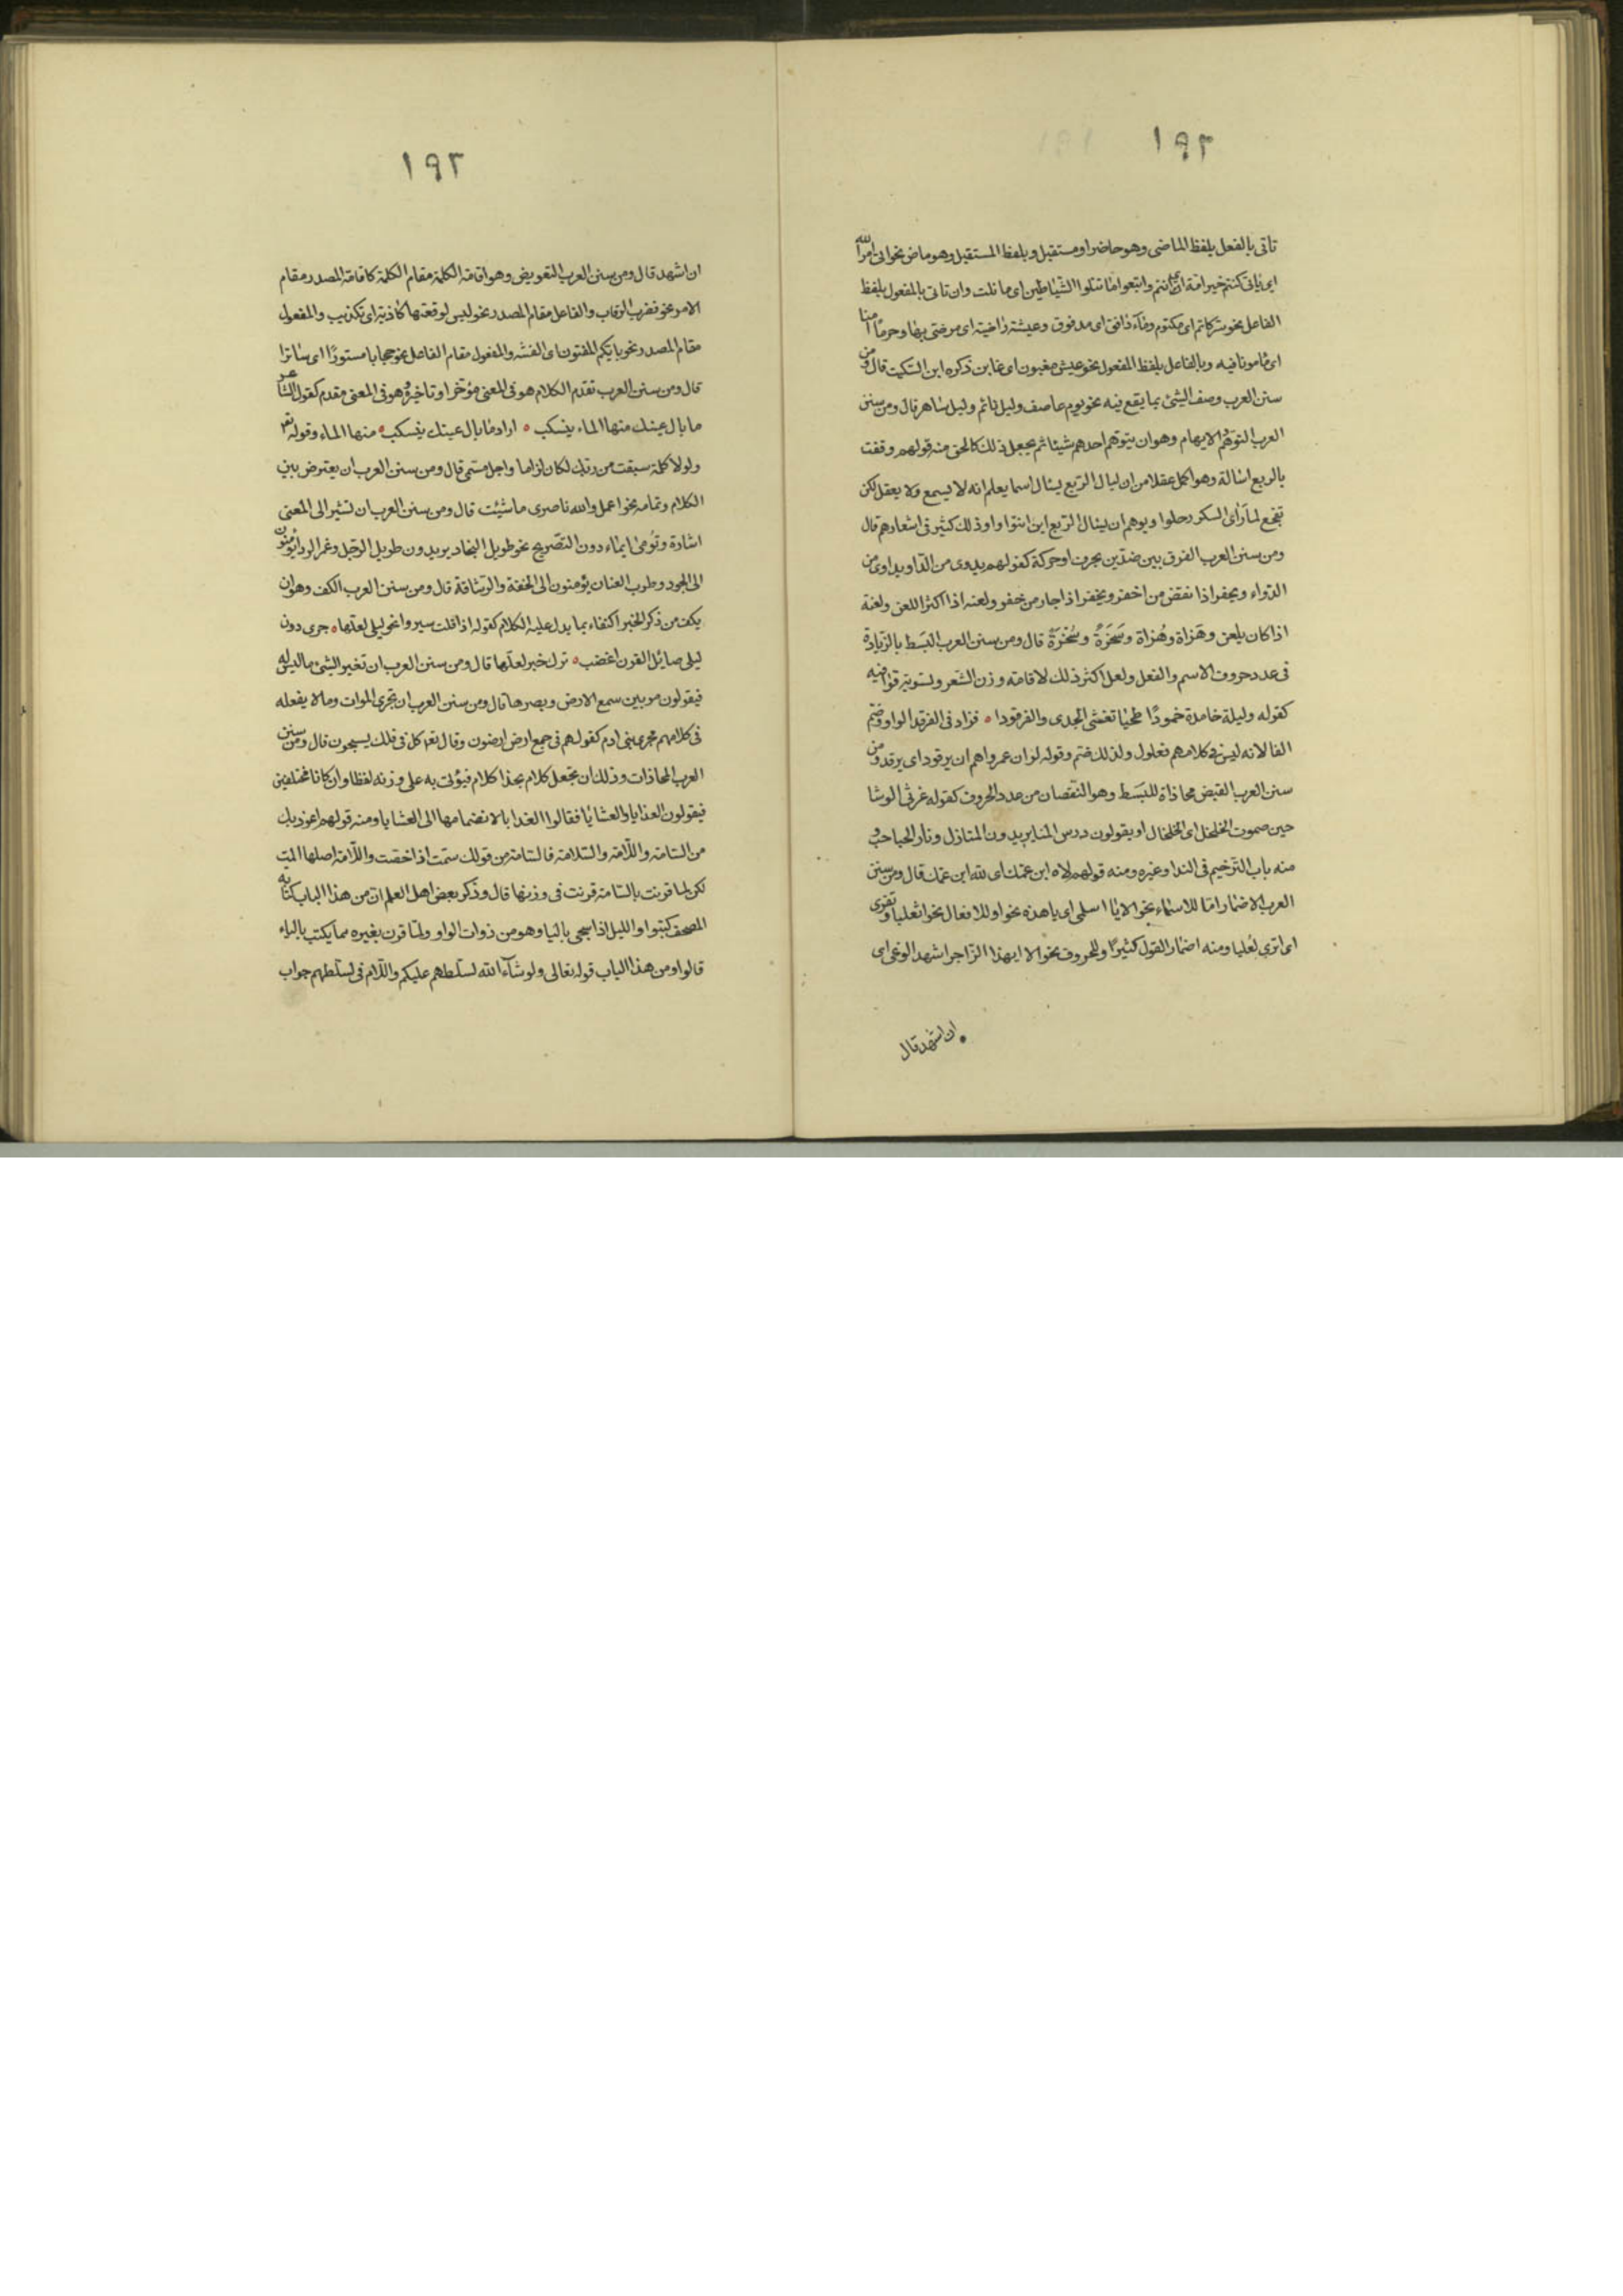 ١٩٢
تاتى بالفعل بلفظ الماضى وهو حاضر او مستقبل و بلفظ المستقبل وهو ماض نحو اتى امر الله
اى ياتى كنتم خير امة اى انتم واتبعوا ما تتلوا الشياطين اى ما تلت وان تاتى بالمفعول بلفظ
الفاعل نحو سر كاتم اى مكتوم وماء دافق اى مدفوق وعيشة راضية اى مرضى بها وحرما امنا
اى مامونا فيه وبالفاعل بلفظ المفعول نحو عيش مغبون اى غابن ذكره ابن السكيت قال ومن
سنن العرب وصف الشئ بما يقع فيه نحو يوم عاصف وليل نائم وليل ساهر قال ومن سنن
العرب التوهم الايهام وهو ان يتوهم احدهم شيئا ثم يجعل ذلك كالحق منه قولهم وقفت
بالربع اسالة وهو اكمل عقلا من ان ليال الربع يسال اسما يعلم انه لا يسمع ولا يعقل لكن
تفجع لما راى السكر رحلوا ويوهم ان يسال الربع اين انتوا وا وذلك كثير فى اشعارهم قال
ومن سنن العرب الفرق بين ضدين بحرف او حركة كقولهم يدوى من الدا ويداوى من
الدواء ويخفر اذا نقض من اخفر ويخفر اذا اجار من خفر ولعنه اذا اكثر اللعن ولعنة
اذا كان يلعن وهزاة وهزاة وسخرة وسخرة قال ومن سنن العرب البسط بالزيادة
فى عدد حروف الاسم والفعل ولعل اكثر ذلك لاقامة وزن الشعر وتسوية قوافيه
كقوله وليلة خامدة خمودا طخيا تغشى الجدى والفرقودا ه فزاد فى الفرقد الواو وضم
الفا لانه ليس فى كلامهم فعلول ولذلك ضم وقوله لوان عمروا هم ان يرقود اى يرقد ومن
سنن العرب القبض محاذاة للبسط وهو النقصان من عدد الحروف كقوله غرثى الوشا
حين صموت الخلخل اى الخلخال او يقولون درس المنا يريدون المنازل ونار الحباحب و
منه باب الترخيم فى الندا وغيره ومنه قولهم لاه ابن عمك اى لله ابن عمك قال ومن سنن
العرب الاضمار اما للاسماء نحو الا يا اسلمى اى يا هذه نحو او للافعال نحو اثعلبا وتفرى
اى اترى ثعلبا ومنه اضمار القول كثيرا وللحروف نحو الا ايهذا الزاجر اشهد الوغى اى
ان اشهد قال
١٩٣
ان اشهد قال ومن سنن العرب التعويض وهو اقامة الكلمة مقام الكلمة كاقامة المصدر مقام
الامر نحو فضرب الرقاب والفاعل مقام المصدر نحو ليس لوقعتها كاذبة اى تكذيب والمفعول
مقام المصدر نحو بايكم المفتون اى الفتنه والمفعول مقام الفاعل نحو حجابا مستورا اى ساترا
قال ومن سنن العرب تقدم الكلام هو فى المعنى مؤخر او تاخيره وهو فى المعنى مقدم كقول الشاعر
ما بال عينك منها الماء ينسكب ه اراد ما بال عينك ينسكب ه منها الماء وقوله تعم
ولولا كلمة سبقت من ربك لكان لزاما واجل مسمى قال ومن سنن العرب ان يعترض بين
الكلام وتمامه نحو اعمل والله ناصرى ما شئت قال ومن سنن العرب ان تشير الى المعنى
اشارة وتومى ايماء دون التصريح نحو طويل النجاد يريدون طويل الرجل وغمر الردا يومنون
الى الجود وطرب العنان يؤمنون الى الخفة والرشاقة قال ومن سنن العرب الكف وهو ان
يكف من ذكر الخبر اكتفاء بما يدل عليه الكلام كقوله اذا قلت سيروا نحو ليلى لعلها ه جرى دون
ليلى صايل القرن اعضب ه ترك خبر لعلها قال ومن سنن العرب ان تعير الشئ ما ليس له
فيقولون مر بين سمع الارض وبصرها قال ومن سنن العرب ان تجرى الموات وما لا يفعله
فى كلامهم مجرى بنى ادم كقولهم فى جمع ارض ارضون وقال تعم كل فى فلك يسبحون قال ومن سنن
العرب المحاذات وذلك ان تجعل كلام بحذا كلام فيؤتى به على وزنه لفظا وان كانا مختلفين
فيقولون الغدايا والعشايا فقالوا الغدايا لانضمامها الى العشايا ومنه قولهم اعوذ بك
من السامة واللامة والسلامة فالسامة من قولك سمت اذا خصت واللامة اصلها المت
لكن لما قرنت بالسامة قرنت فى وزنها قال وذكر بعض اهل العلم ان من هذا الباب كتابة
المصحف كتبوا والليل اذا سجى باليا وهو من ذوات الواو ولما قرن بغيره مما يكتب بالياء
قالوا ومن هذا الباب قوله تعالى ولو شاء الله لسلطهم عليكم واللام فى لسلطهم جواب